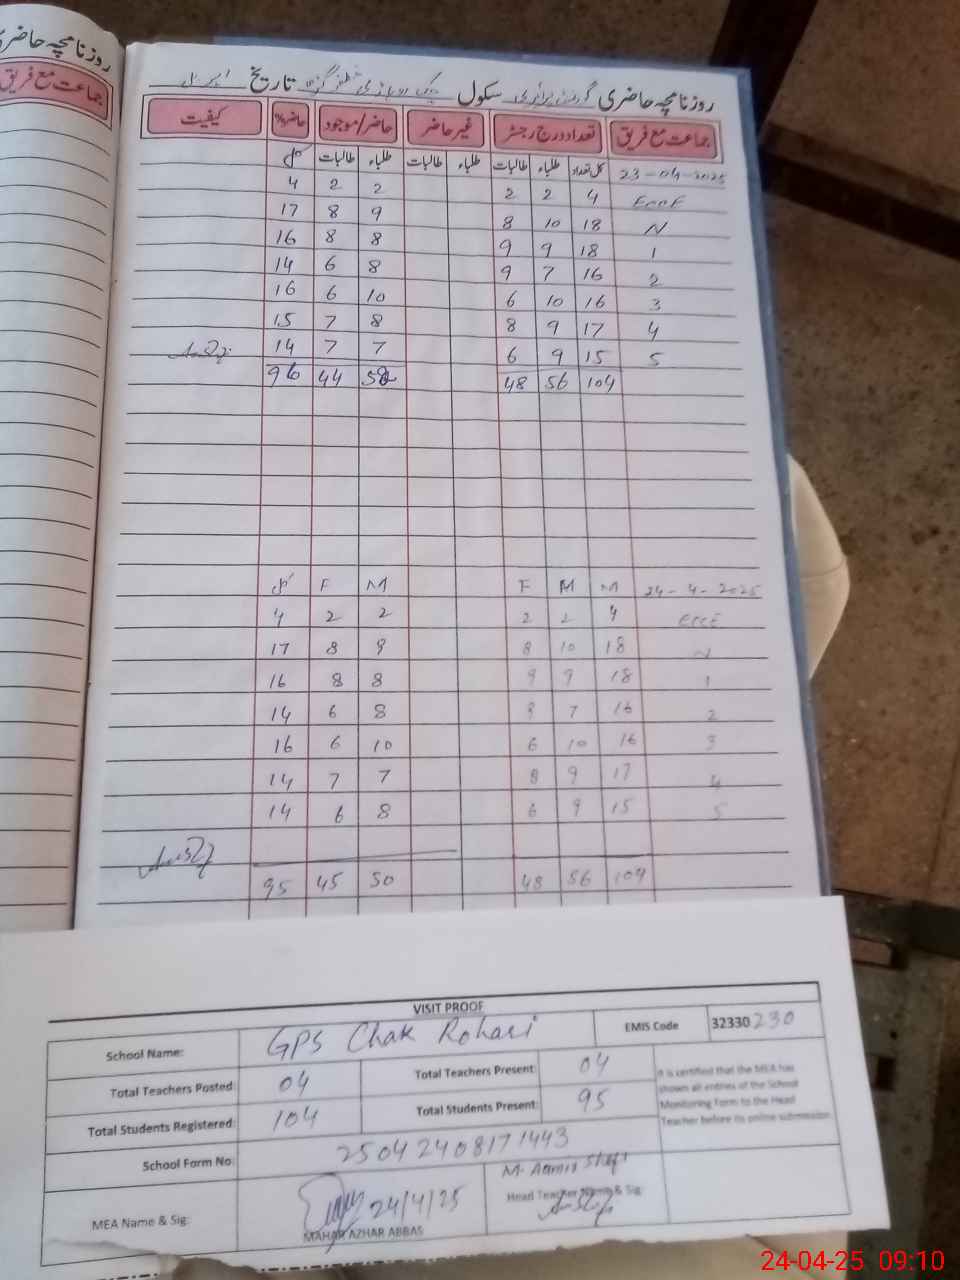 روزنامچہ حاضری
جماعت مع فریق
روزنامچہ حاضری گورنمنٹ پرائمری سکول چک روہاڑی مظفر گڑھ تاریخ اپریل
جماعت مع فریق تعداد درج رجسٹر غیر حاضر حاضر/موجود حاضر% کیفیت
23-04-2025 کل تعداد طلباء طالبات طلباء طالبات طلباء طالبات کل
EccE 4 2 2 2 2 4
N 18 10 8 9 8 17
1 18 9 9 8 8 16
2 16 7 9 8 6 14
3 16 10 6 10 6 16
4 17 9 8 8 7 15
5 15 9 6 7 7 14
104 56 48 44 96
24-4-2025 M M F M F کل
EccE 4 2 2 2 2 4
N 18 10 8 9 8 17
1 18 9 9 8 8 16
2 16 7 9 8 6 14
3 16 10 6 10 6 16
4 17 9 8 7 7 14
5 15 9 6 8 6 14
104 56 48 50 45 95
VISIT PROOF
School Name: GPS Chak Rohari EMIS Code 32330230
Total Teachers Posted: 04 Total Teachers Present: 04
Total Students Registered: 104 Total Students Present: 95
It is certified that the MEA has
shown all entries of the School
Monitoring Form to the Head
Teacher before its online submission
School Form No: 25042408171443
MEA Name & Sig: 24/4/25 MAHAR AZHAR ABBAS
M. Aamir Shafi
Head Teacher Name & Sig:
24-04-25 09:10